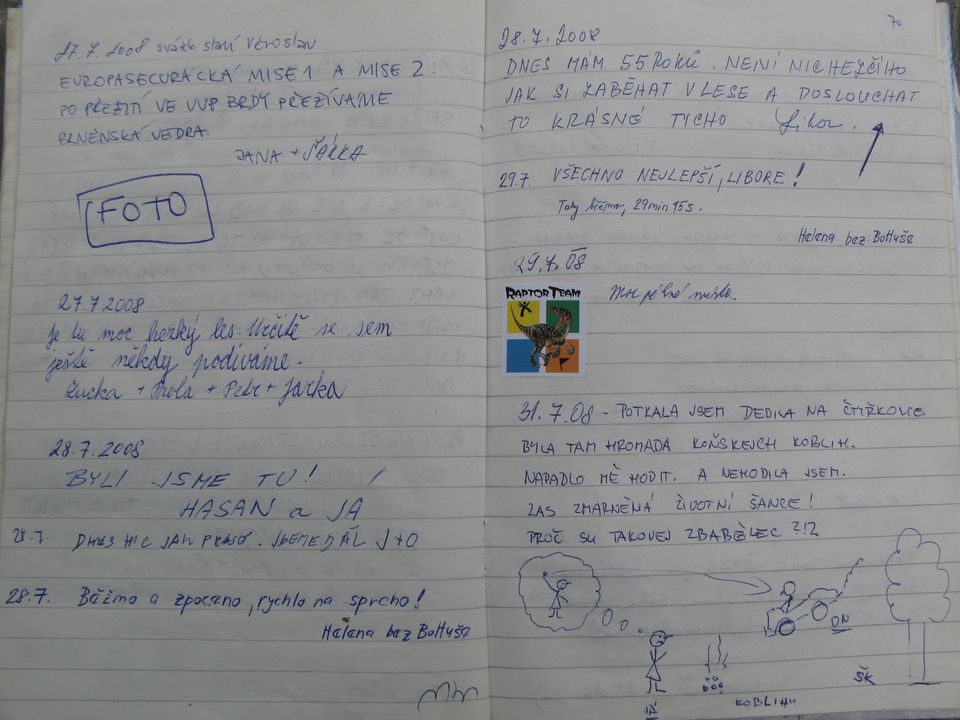 27.7.2008 svátek slaví Věroslav
EVROPASECURÁCKÁ MISE 1 A MISE 2:
PO PŘEŽITÍ VE VVP BRDY PŘEŽÍVÁME
BRNĚNSKÁ VEDRA.
JANA + ŠÁRKA
FOTO
27.7.2008
Je tu moc hezký les. Určitě se sem
ještě někdy podíváme.
Lucka + Pavla + Petr + Jarka
28.7.2008
BYLI JSME TU!
HASAN a JÁ
28.7. DNES NIC JAK PRÁVĚ. JDEME DÁL
28.7. Bážmo a zpoceno, rychlo na sprcho!
Helena bez BoHuša
70
28.7.2008
DNES MÁM 55 ROKŮ. NENÍ NIC HEZČÍHO
JAK SI ZABĚHAT V LESE A POSLOUCHAT
TO KRÁSNÉ TICHO Libor.
29.7. VŠECHNO NEJLEPŠÍ, LIBORE!
Taky běžmo, 29min 15s.
Helena bez BoHuša
29.7.08
RAPTOR TEAM
Moc pěkné místo.
31.7.08 - POTKALA JSEM DEDILA NA ČTYŘKOLCE
BYLA TAM HROMADA KOŇSKEJCH KOBLIH.
NAPADLO MĚ HODIT. A NEHODILA JSEM.
ZAS ZMARNĚNÁ ŽIVOTNÍ ŠANCE!
PROČ SU TAKOVEJ ZBABĚLEC ?!?
ON
ŠK
KOBLIHY